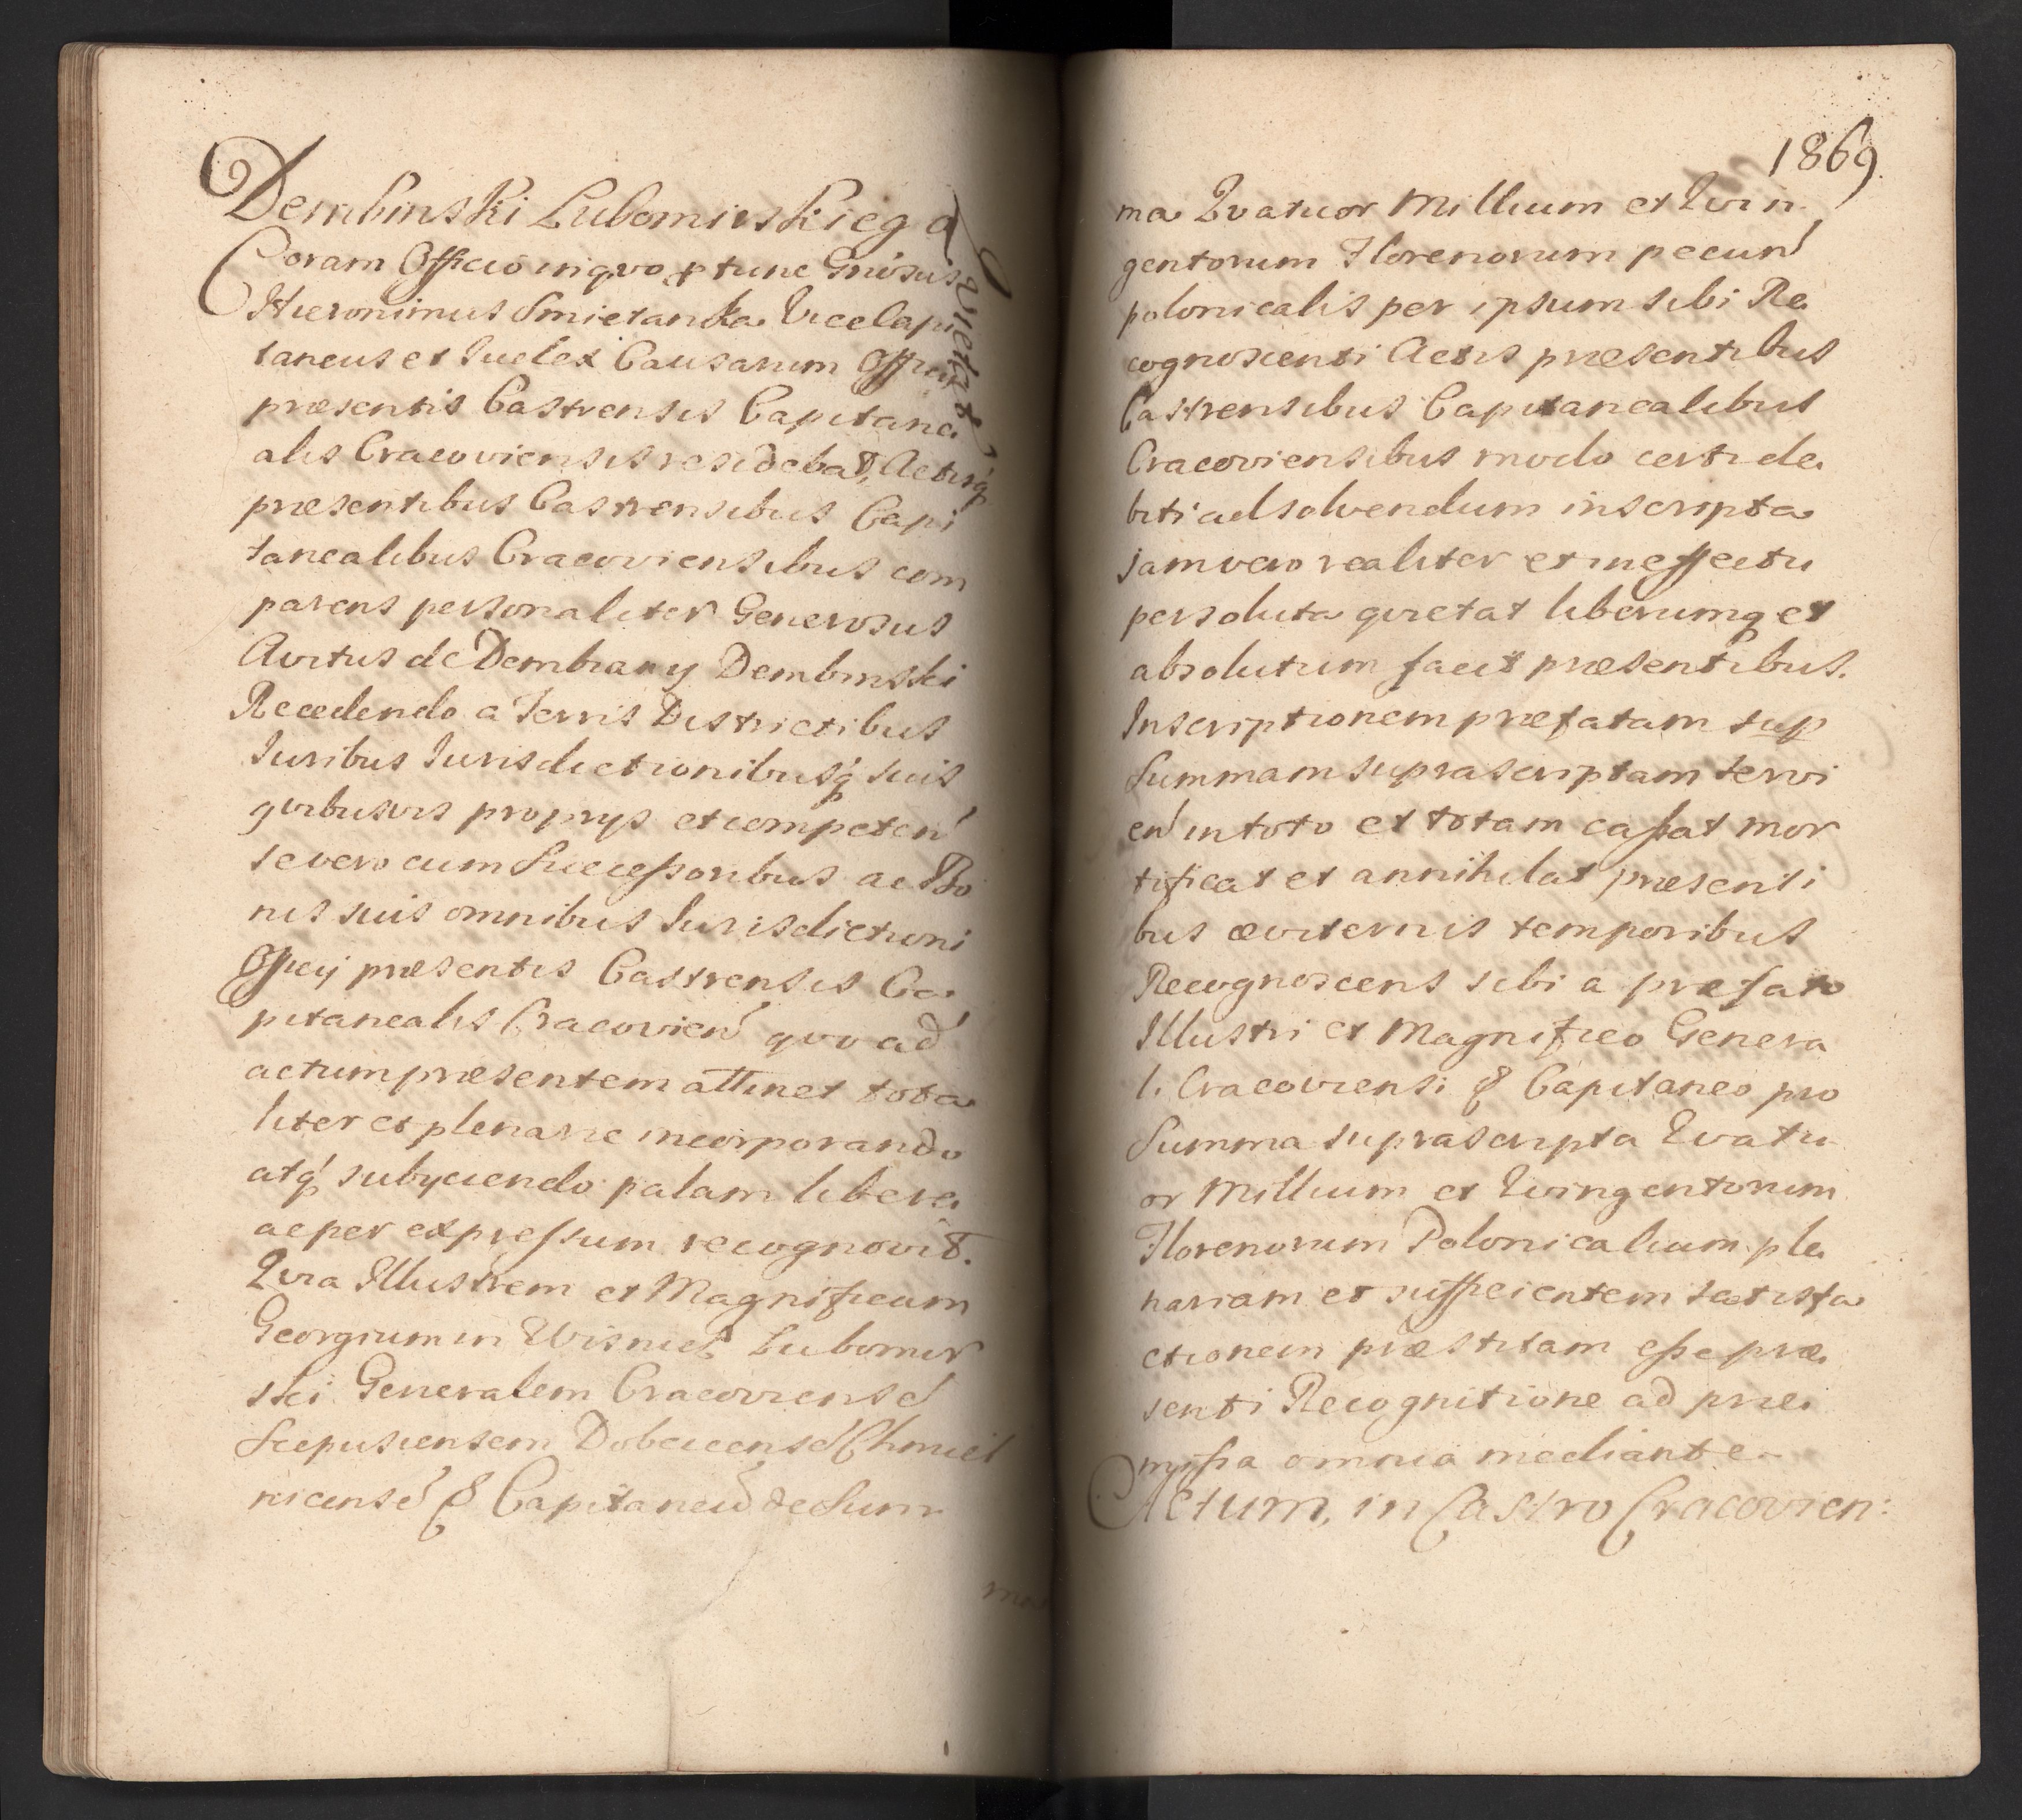 Dembinski Lubomirskiego
Quietat
Coram Officio inqvo p tunc Gnósus
Hieronimus Smietanka Vicecapi
taneus et Iudex Causarum Officij
præsentis Castrensis Capitane
alis Cracoviensis residebat, Actisq́
præsentibus Castrensibus Capi
tanealibus Cracoviensibus com
parens personaliter Generosus
Avitus de Dembiany Dembinski
Recedendo a Terris Districtibus
Iuribus Iurisdictionibusq́ suis
qvibusvis proprys et competeń
se vero cum Successoribus ac Bo
nis suis omnibus Iurisdictioni
Officij præsentis Castrensis Ca
pitanealis Cracovień qvo ad
actum præsentem attinet tota
liter et plenarie incorporando
atq́ subyciendo palam libere
ac per expressum recognovit.
Qvia Illustrem et Magnificum
Georgium in Wisnicz Lubomir
ski Generalem Cracoviensé
Scepusiensem Dobcicensé Chmiel
nicensé & Capitaneú de Sum
ma
1869.
ma Qvatuor Millium et Qvin
gentorum Florenorum pecuń
polonicalis per ipsum sibi Re
cognoscenti Actis præsentibus
Castrensibus Capitanealibus
Cracoviensibus modo certi de
biti ad solvendum inscripta
jam vero realiter et in effectu
persoluta qvietat liberumq et
absolutum facit præsentibus.
Inscriptionem præfatam sup
Summam suprascriptam servi
eń in toto et totam cassat mor
tificat et annihilat præsenti
bus æviternis temporibus
Recognoscens sibi a præfato
Illustri et Magnifico Genera
li Cracoviensi & Capitaneo pro
Summa suprascripta Qvatu
or Millium et Qvingentorum
Florenorum Polonicalium ple
nariam et sufficientem satisfa
ctionem præstitam esse præ
senti Recognitione ad præ
missa omnia mediante
Actum, in Castro Cracovien: